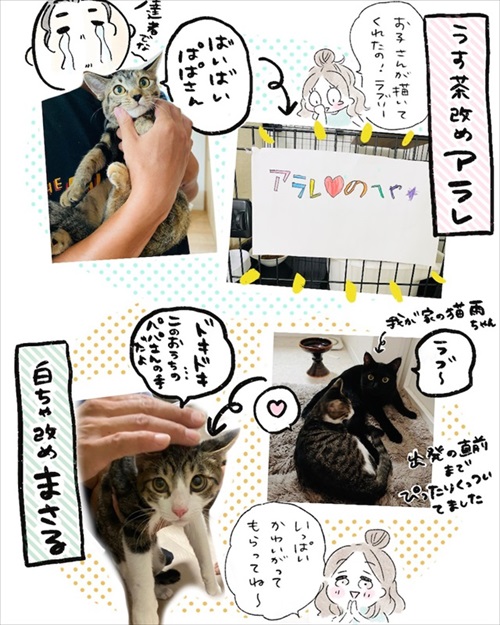 うす茶改めアラレ
お子さんが描いて
くれたの！ラブリー
ばいばい
ぱぱさん
達者でな
アラレ♥のへや★
我が家の猫雨
ちゃん
ラブ〜
ドキドキ
…
このおうちの
パパさんの手
だよ
♡
出発の直前
まで
ぴったりくっつい
てました
白ちゃ改めまさる
いっぱい
かわいがって
もらってね〜